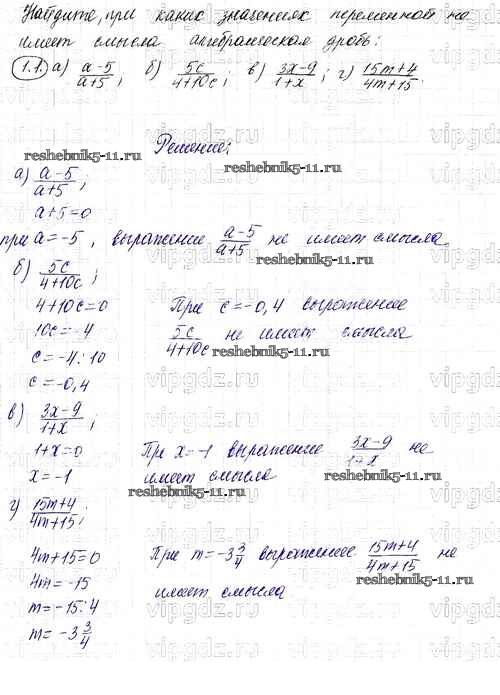 Найдите, при каких значениях переменной не
имеет смысла алгебраическая дробь:
1.1. а) a-5/a+5; б) 5c/4+10c; в) 3x-9/1+x; г) 15m+4/4m+15.
Решение:
reshebnik5-11.ru reshebnik5-11.ru
а) a-5/a+5;
a+5=0
при a=-5, выражение a-5/a+5 не имеет смысла
reshebnik5-11.ru
б) 5c/4+10c;
4+10c=0 При c=-0,4 выражение
10c=-4 5c/4+10c не имеет смысла
c=-4:10 reshebnik5-11.ru
c=-0,4
в) 3x-9/1+x;
1+x=0 При x=-1 выражение 3x-9/1+x не
x=-1 имеет смысла
reshebnik5-11.ru reshebnik5-11.ru
г) 15m+4/4m+15;
4m+15=0 При m=-3 3/4 выражение 15m+4/4m+15 не
4m=-15 имеет смысла
reshebnik5-11.ru
m=-15:4
m=-3 3/4
vipgdz.ru